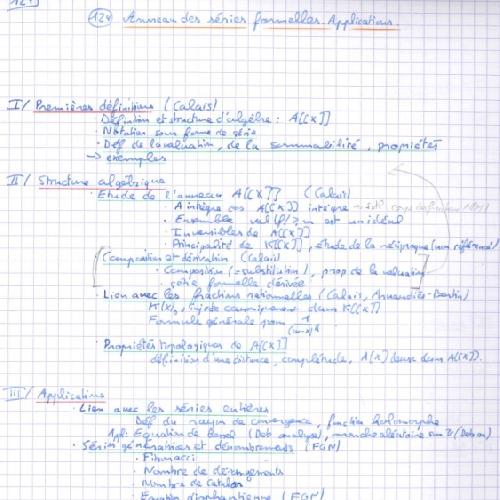 124
124 Anneau des séries formelles. Applications.
I/ Premières définitions (Calais)
. Définition et structure d'algèbre : A[[X]]
. Notation sous forme de série
. Def de la valuation, de la sommabilité, propriétés
→ exemples
II/ Structure algébrique
. Etude de l'anneau A[[X]] (Calais)
. A intègre A[[X]] intègre
. Ensemble val(f) ≥ m est un idéal
. Inversibles de A[[X]]
. Principalité de K[[X]], étude de la réciproque (non référencé)
Composition et dérivation (Calais)
. Composition (= substitution), prop de la valuation
. série formelle dérivée
. Lien avec les fractions rationnelles (Calais, Arnaudiès-Bertin)
K(X)o s'injecte dans K[[X]]
Formule générale pour
. Propriétés topologiques de A[[X]]
définition d'une distance, complétude, A[X] dense dans A[[X]].
III/ Applications
. Lien avec les séries entières
Def du rayon de convergence, fonction holomorphe
Appl: Equation de
. Séries génératrices et dénombrements (FGN)
. Fibonacci
. Nombre de dérangements
. Nombre de Catalan
. Equation diophantienne (FGN)